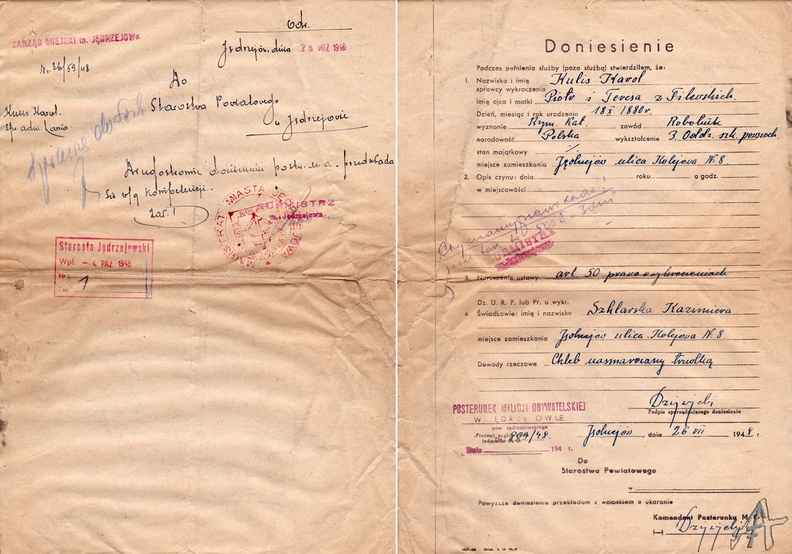 Odr.
ZARZĄD MIEJSKI m. JĘDRZEJOWA
Jędrzejów, dnia 28 PAŹ 1948
Nr. 26/59/48
Do
Kulis Karol
Starostwa Powiatowego
w Jędrzejowie
doniesienie post. M.O. przedkłada
się wg kompetencji.
zał. 1
MAGISTRAT MIASTA JĘDRZEJOWA
BURMISTRZ
m. Jędrzejowa
Starosta Jędrzejowski
Wpł. - 4 PAŹ 1948
Nr
Zał. 1
Doniesienie
Podczas pełnienia służby (poza służbą) stwierdziłem, że:
1. Nazwisko i imię Kulis Karol
sprawcy wykroczenia
Imię ojca i matki Piotr i Teresa z
Dzień, miesiąc i rok urodzenia 18 X 1880r.
wyznanie Rzym. Kat. zawód Robotnik
narodowość Polska wykształcenie 3. Oddz. szk. powszech
stan majątkowy -/-
miejsce zamieszkania Jędrzejów ulica Kolejowa N 8
2. Opis czynu: dnia roku o godz.
w miejscowości
BURMISTRZ
3. Naruszenie ustawy art 50 prawa o wykroczeniach
Dz. U. R. P. lub Pr. o wykr.
4. Świadkowie: imię i nazwisko Szklarska Kazimiera
miejsce zamieszkania Jędrzejów ulica Kolejowa N 8.
Dowody rzeczowe Chleb nasmarowany trutką
Podpis sporządzającego doniesienie
POSTERUNEK MILICJI OBYWATELSKIEJ
W JĘDRZEJOWIE
pow. Jędrzejowskiego
/48 Jędrzejów, dnia 26 VII 1948 r.
Dnia 194 r.
Do
Starostwa Powiatowego
w
Powyższe doniesienie przekładam z wnioskiem o ukaranie
Komendant Posterunku M. O.